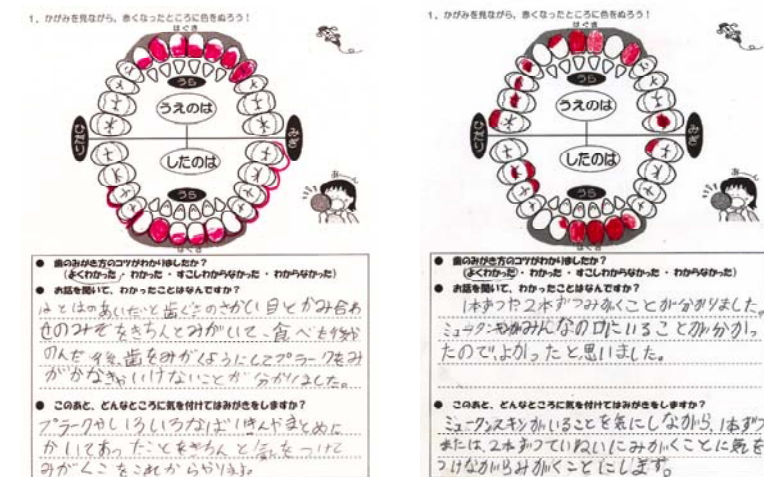 1．かがみを見ながら、赤くなったところに色をぬろう！
はぐき
うら
うえのは
ひだり
みぎ
したのは
うら
はぐき
あーん
● 歯のみがき方のコツがわかりましたか？
（よくわかった・わかった・すこしわからなかった・わからなかった）
● お話を聞いて、わかったことはなんですか？
はとはのあいだと歯ぐきのさかい目とかみ合わ
せのみぞをきちんとみがいて、食べた後か
のんだ後、歯をみがくようにしてプラークをみ
がかなきゃいけないことが分かりました。
● このあと、どんなところに気を付けてはみがきをしますか？
プラークやいろいろな
かいてあったことをきちんと気をつけて
みがくことをこれからやります。
1．かがみを見ながら、赤くなったところに色をぬろう！
はぐき
うら
うえのは
ひだり
みぎ
したのは
うら
はぐき
あーん
● 歯のみがき方のコツがわかりましたか？
（よくわかった・わかった・すこしわからなかった・わからなかった）
● お話を聞いて、わかったことはなんですか？
1本ずつか2本ずつみがくことが分かりました。
ミュータンキンがみんなの口にいることが分かっ
たので、よかったと思いました。
● このあと、どんなところに気を付けてはみがきをしますか？
ミュータンスキンがいることを気にしながら、1本ずつ
または、2本ずつていねいにみがくことに気を
つけながらみがくことにします。